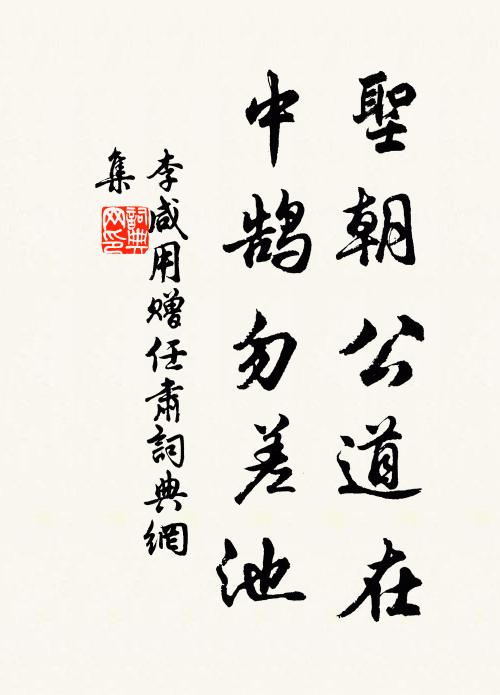 聖朝公道在
中鵠勿差池
李咸用贈任肅詞典網
集
詞典网印